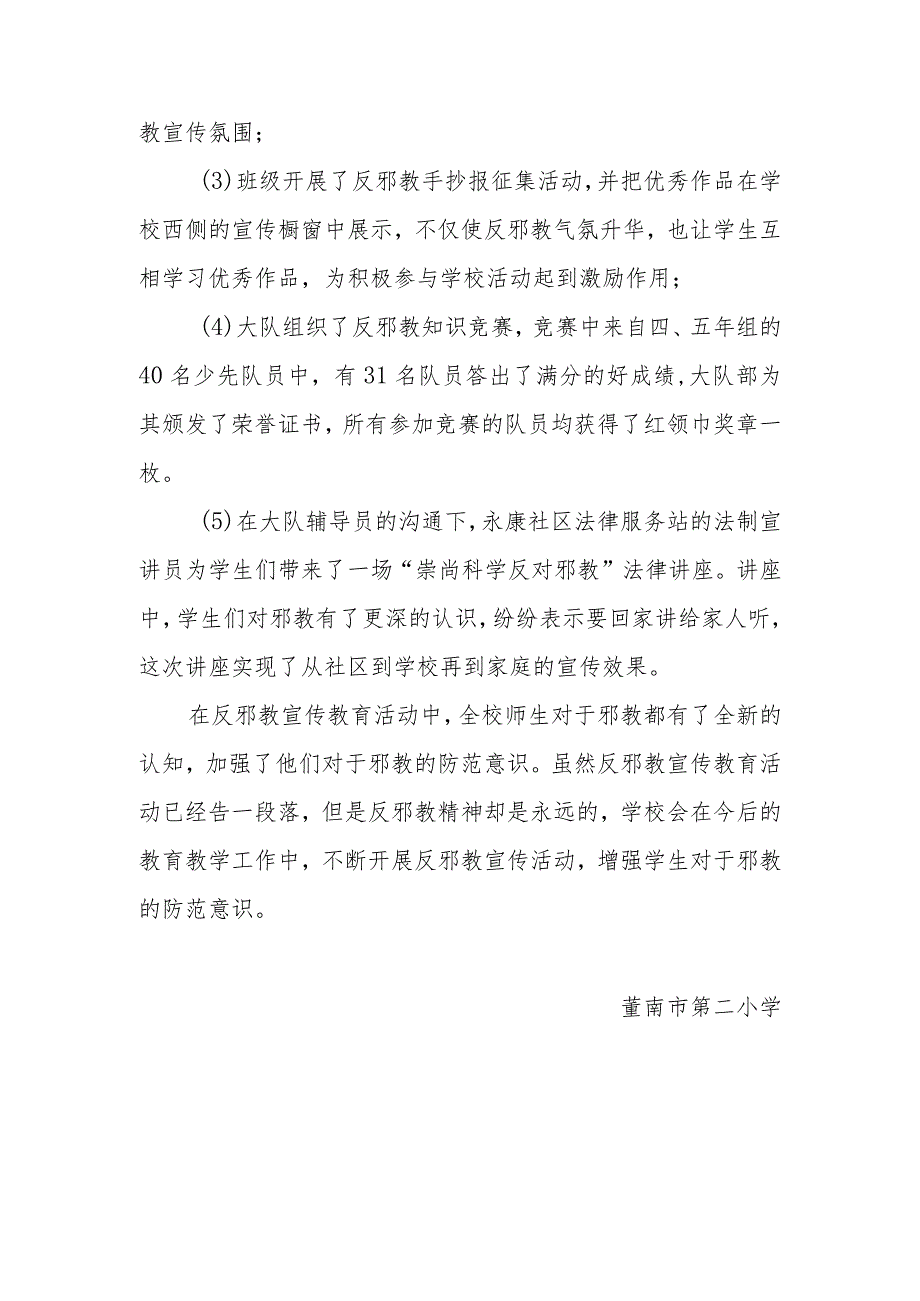 教宣传氛围；
(3)班级开展了反邪教手抄报征集活动,并把优秀作品在学
校西侧的宣传橱窗中展示，不仅使反邪教气氛升华，也让学生互
相学习优秀作品，为积极参与学校活动起到激励作用；
(4)大队组织了反邪教知识竞赛，竞赛中来自四、五年组的
40 名少先队员中，有 31 名队员答出了满分的好成绩,大队部为
其颁发了荣誉证书，所有参加竞赛的队员均获得了红领巾奖章一
枚。
(5)在大队辅导员的沟通下，永康社区法律服务站的法制宣
讲员为学生们带来了一场“崇尚科学反对邪教”法律讲座。讲座
中,学生们对邪教有了更深的认识,纷纷表示要回家讲给家人听,
这次讲座实现了从社区到学校再到家庭的宣传效果。
在反邪教宣传教育活动中，全校师生对于邪教都有了全新的
认知，加强了他们对于邪教的防范意识。虽然反邪教宣传教育活
动已经告一段落，但是反邪教精神却是永远的，学校会在今后的
教育教学工作中，不断开展反邪教宣传活动，增强学生对于邪教
的防范意识。
董南市第二小学